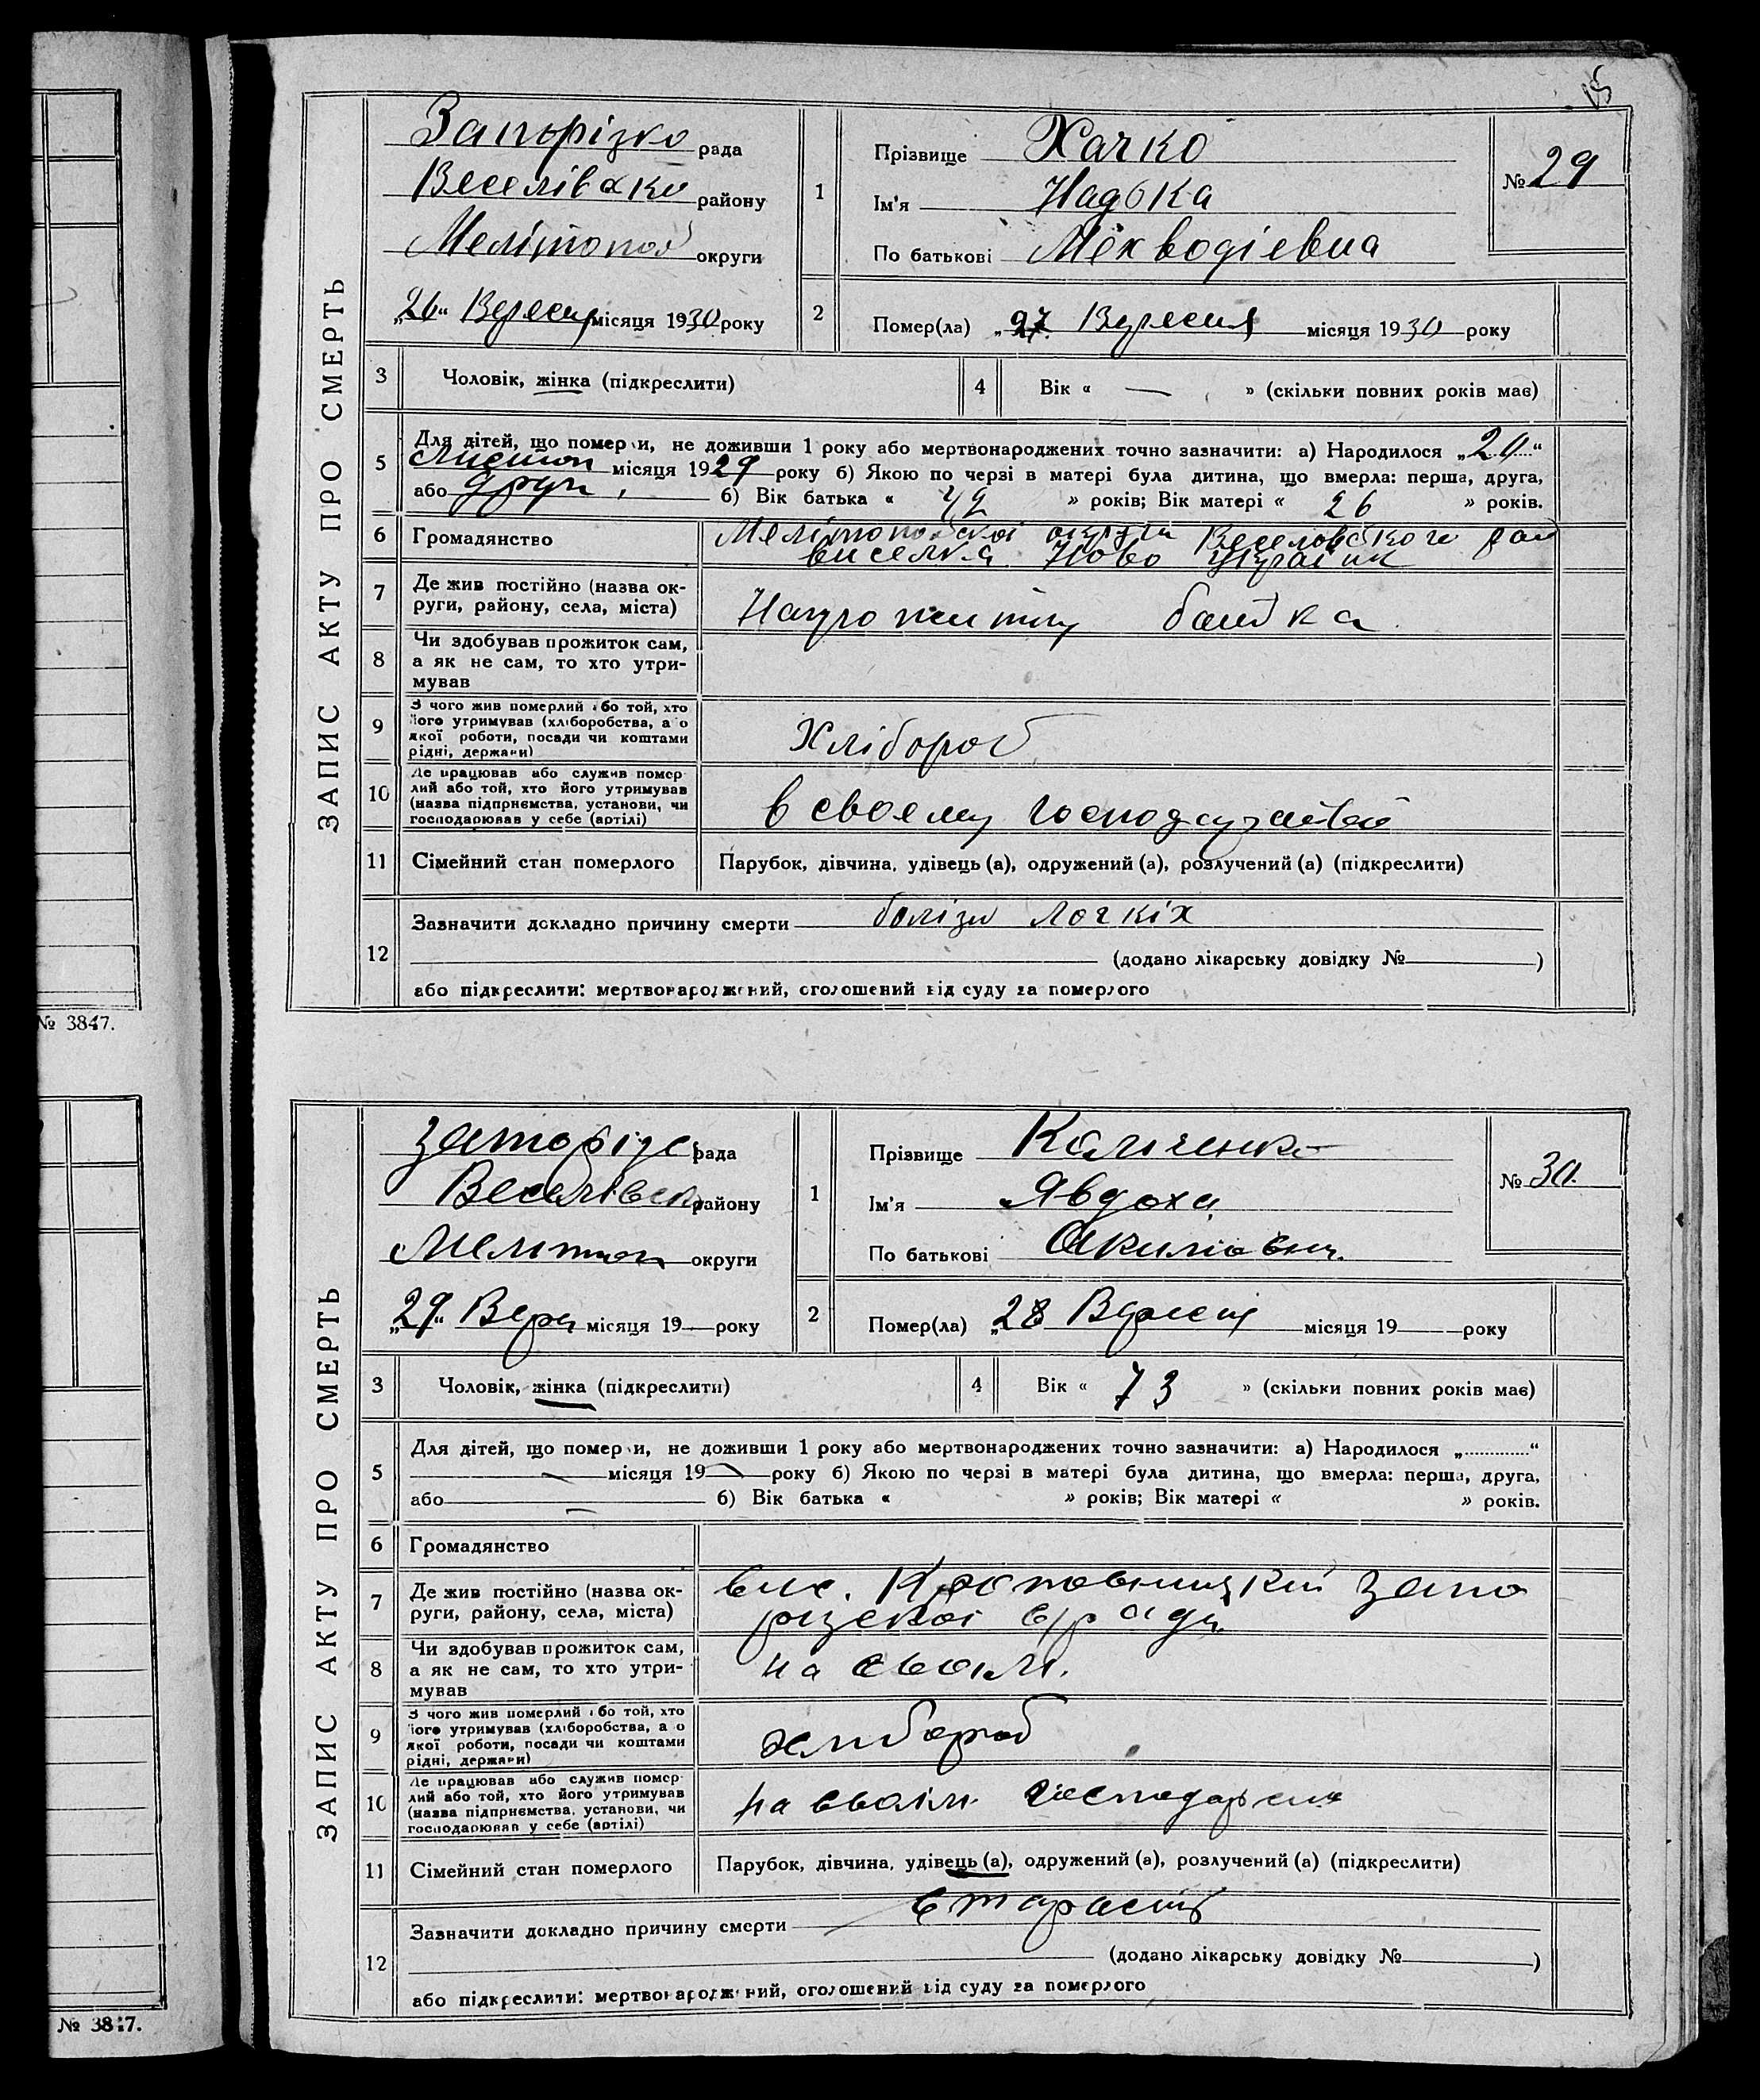 15
ЗАПИС АКТУ ПРО СМЕРТЬ
Запорізко рада
Веселівско району
Мелітопол округи
„26“ Вересня місяця 1930 року
1
Прізвище Хачко
Ім'я Надька
По батькові Мехводіевна
№ 29
2
Помер(ла) „27 Вересня місяця 1930 року
3 Чоловік, жінка (підкреслити)
4 Вік « — » (скільки повних років має)
5 Для дітей, що померли, не доживши 1 року або мертвонароджених точно зазначити: а) Народилося „20“
Листоп місяця 1929 року б) Якою по черзі в матері була дитина, що вмерла: перша, друга,
або друг, б) Вік батька « 42 » років; Вік матері « 26 » років.
6 Громадянство Мелітопольскоі округи Веселовского рай
виселка Ново Украінк
7 Де жив постійно (назва ок-
руги, району, села, міста)
батька
8 Чи здобував прожиток сам,
а як не сам, то хто утри-
мував
9 З чого жив померлий або той, хто
його утримував (хліборобства, або
якої роботи, посади чи коштами
рідні, держави)
Хлібороб
10 Де працював або служив помер-
лий або той, хто його утримував
(назва підприємства, установи, чи
господарював у себе (артілі)
в своему
11 Сімейний стан померлого Парубок, дівчина, удівець (а), одружений (а), розлучений (а) (підкреслити)
12 Зазначити докладно причину смерти болізн логкіх
(додано лікарську довідку № )
або підкреслити: мертвонароджений, оголошений від суду за померлого
№ 3847.
ЗАПИС АКТУ ПРО СМЕРТЬ
Запорізс рада
Веселівск району
Мелитоп округи
„29“ Вере місяця 19— року
1
Прізвище Каліченко
Ім'я Явдоха
По батькові
№ 30.
2
Помер(ла) „28 Вересня місяця 19— року
3 Чоловік, жінка (підкреслити)
4 Вік « 73 » (скільки повних років має)
5 Для дітей, що померли, не доживши 1 року або мертвонароджених точно зазначити: а) Народилося „..........“
— місяця 19— року б) Якою по черзі в матері була дитина, що вмерла: перша, друга,
або — б) Вік батька « » років; Вік матері « » років.
6 Громадянство
7 Де жив постійно (назва ок-
руги, району, села, міста)
вис. Кроповницкий Запо
рizскоі с/ради
8 Чи здобував прожиток сам,
а як не сам, то хто утри-
мував
на своім.
9 З чого жив померлий або той, хто
його утримував (хліборобства, або
якої роботи, посади чи коштами
рідні, держави)
хлибороб
10 Де працював або служив помер-
лий або той, хто його утримував
(назва підприємства, установи, чи
господарював у себе (артілі)
на своім
11 Сімейний стан померлого Парубок, дівчина, удівець (а), одружений (а), розлучений (а) (підкреслити)
12 Зазначити докладно причину смерти старость
(додано лікарську довідку № )
або підкреслити: мертвонароджений, оголошений від суду за померлого
№ 3847.